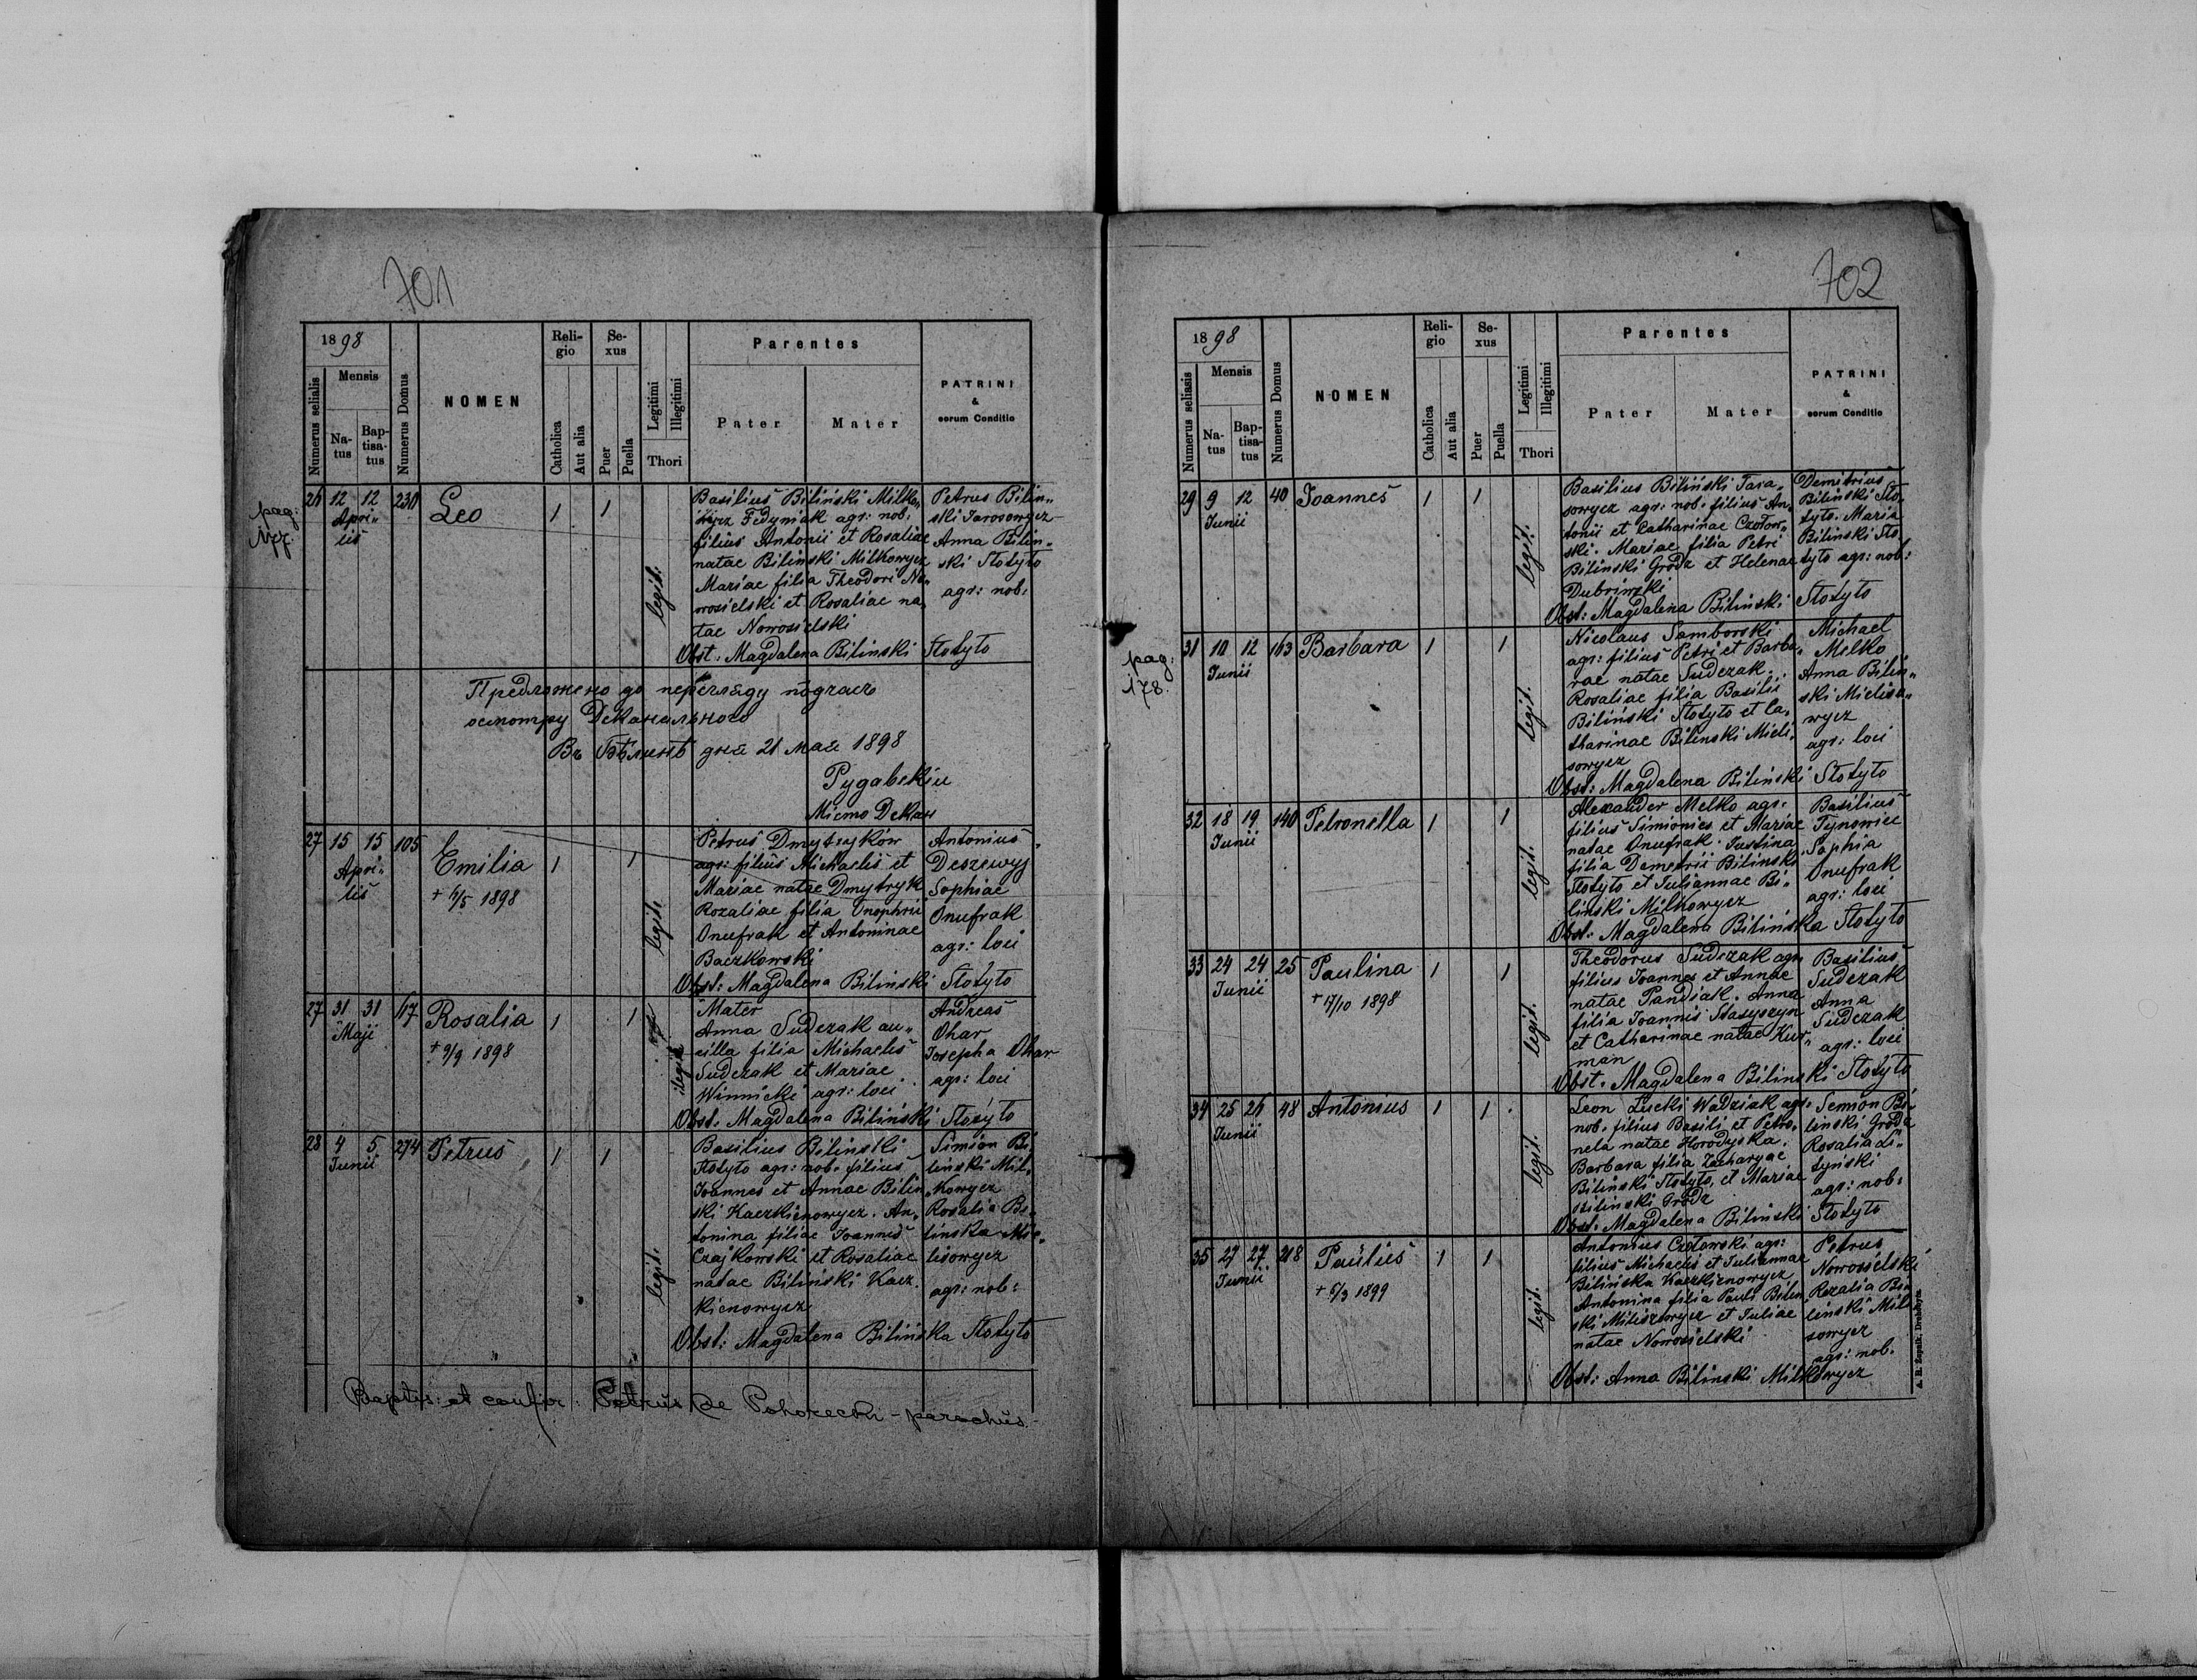 701
1898
Numerus serialis
Mensis
Na-
tus
Bap-
tisa-
tus
Numerus Domus
NOMEN
Reli-
gio
Catholica
Aut alia
Se-
xus
Puer
Puella
Legitimi
Illegitimi
Thori
Parentes
Pater
Mater
PATRINI
&
eorum Conditio
pag:
177.
26 12 12 230 Leo 1 1 legit.
Apri-
lis
Basilius Biliński Milko-
wycz Fedyniak agr: nob:
filius Antonii et Rosaliae
natae Biliński Milkowycz
Mariae filia Theodori No-
wosielski et Rosaliae na-
tae Nowosielski
Petrus Bilin-
ski Tarasowycz
Anna Bilin-
ski Stożyto
agr: nob:
Obst: Magdalena Biliński Stożyto
Предложено до перегляду підчас
осмотру Деканального
Въ Бѣлинѣ дня 21 мая 1898
Декан
27 15 15 105 Emilia 1 1 legit.
Apri-
lis
+ 6/5 1898
Petrus Dmytryków
agr: filius Michaelis et
Mariae natae Dmytryk
Rozaliae filia Onophrii
Onufrak et Antoninae
Baczkowski
Antonius
Deszewyj
Sophiae
Onufrak
agr: loci
Obst: Magdalena Biliński Stożyto
27 31 31 117 Rosalia 1 1 ilegit.
Maji
+ 9/9 1898
Mater
Anna Sudczak an-
cilla filia Michaelis
Sudczak et Mariae
Winnicki agr: loci
Andreas
Ohar
Josepha Ohar
agr: loci
Obst: Magdalena Biliński Stożyto
28 4 5 274 Petrus 1 1 legit.
Junii
Basilius Biliński
Stożyto agr: nob: filius
Joannes et Annae Bilin-
ski Kaczkienowycz. An-
tonina filiae Joannes
Czajkowski et Rosaliae
natae Biliński Kacz-
kienowycz
Simion Bi-
linski Mil-
kowycz
Rosalia Bi-
linska Mie-
lisowycz
agr: nob:
Obst: Magdalena Bilińska Stożyto
Baptis: et confir: Petrus de Pohorecki - parochus.
702
1898
Numerus seliasis
Mensis
Na-
tus
Bap-
tisa-
tus
Numerus Domus
NOMEN
Reli-
gio
Catholica
Aut alia
Se-
xus
Puer
Puella
Legitimi
Illegitimi
Thori
Parentes
Pater
Mater
PATRINI
&
eorum Conditio
29 9 12 40 Joannes 1 1 legit.
Junii
Basilius Biliński Tara-
sowycz agr: nob: filius An-
tonii et Catharinae Czołow-
ski. Mariae filia Petri
Biliński Grodz et Helenae
Dubriwski
Demitrius
Biliński Sto-
żyto. Maria
Biliński Sto-
żyto agr: nob:
Obst: Magdalena Biliński Stożyto
pag:
178.
31 10 12 163 Barbara 1 1 legit.
Junii
Nicolaus Samborski
agr: filius Petri et Barba-
rae natae Sudczak.
Rosaliae filia Basilii
Biliński Stożyto et Ca-
tharinae Biliński Mieli-
sowycz
Michael
Melko
Anna Bilin-
ski Mieliso-
wycz
agr: loci
Obst: Magdalena Biliński Stożyto
32 18 19 140 Petronella 1 1 legit.
Junii
Alexander Melko agr:
filius Simionies et Mariae
natae Onufrak. Justina
filia Demetrii Biliński
Stożyto et Juliannae Bi-
liński Milkowycz
Basilius
Tynowiec
Sophia
Onufrak
agr: loci
Obst: Magdalena Bilińska Stożyto
33 24 24 25 Paulina 1 1 legit.
Junii
+ 17/10 1898
Theodorus Sudczak agr:
filius Joannes et Annae
natae Pandiak. Anna
filia Joannis Stasyszyn
et Catharinae natae Kur-
man
Basilius
Sudczak
Anna
Sudczak
agr: loci
Obst: Magdalena Biliński Stożyto
34 25 26 48 Antonius 1 1 legit.
Junii
Leon Łucki Wadziak agr:
nob: filius Basili et Petro-
nela natae Horodyska.
Barbara filia Zacharyae
Biliński Stożyto, et Mariae
Biliński Grodz
Semion Bi-
linski Grodz
Rosalia Li-
tyński
agr: nob:
Obst: Magdalena Biliński Stożyto
35 27 27 218 Paulus 1 1 legit.
Junii
+ 6/3 1899
Antonius Czołowski agr:
filius Michaelis et Juliannae
Bilińska Kaczkienowycz
Antonina filia Pauli Bilin-
ski Miliszowycz et Juliae
natae Nowosielski
Petrus
Nowosielski
Rozalia Bi-
linski Mili-
sowycz
agr: nob.
Obst: Anna Biliński Milkowycz